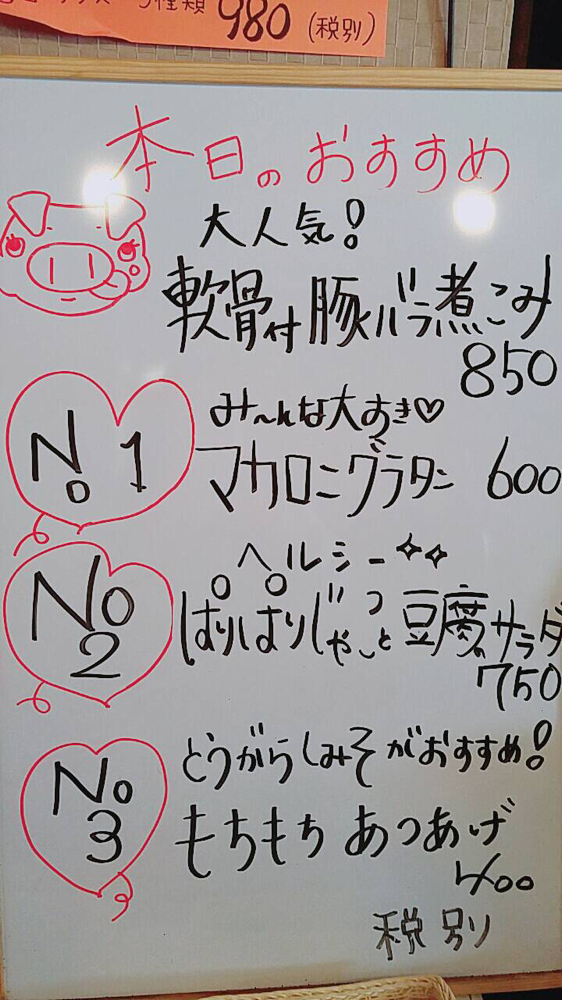 種類 980 (税別)
本日のおすすめ
大人気!
軟骨付豚バラ煮こみ
850
No 1
み〜んな大すき♡
マカロニグラタン 600
No 2
ヘルシー✧✧
ぱりぱりじゃこっと豆腐のサラダ
750
No 3
とうがらしみそがおすすめ!
もちもちあつあげ
400
税別